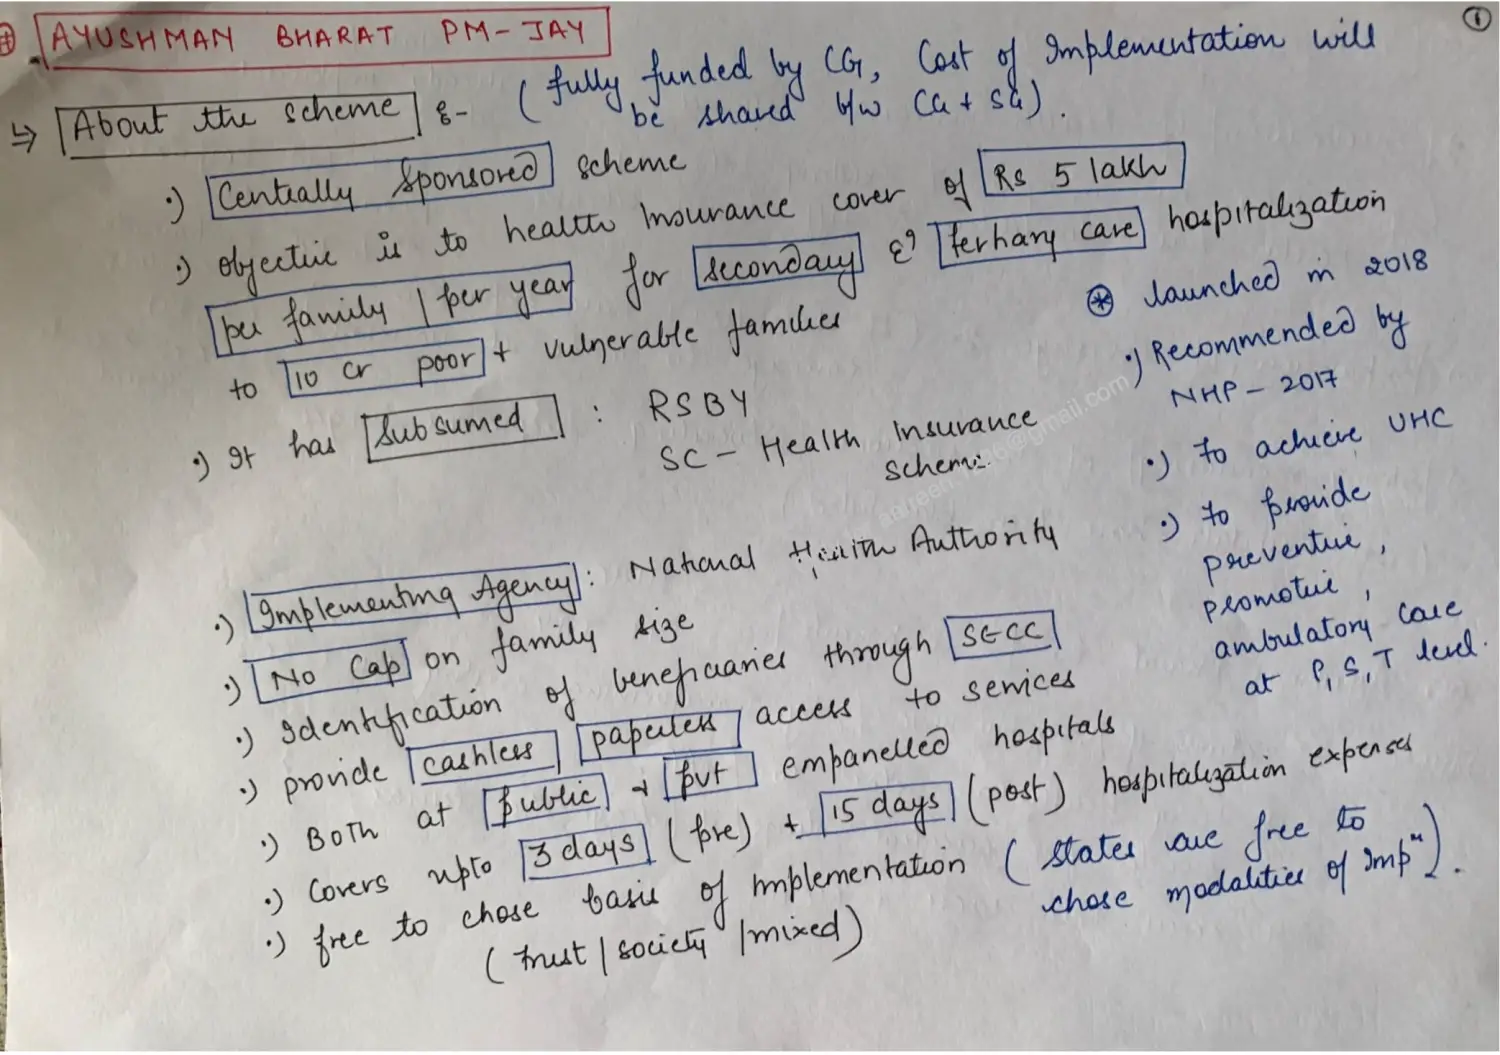 AYUSHMAN BHARAT PM-JAY
①
About the scheme :- (fully funded by CG, Cost of Implementation will
be shared b/w CG + SG).
•) Centrally Sponsored scheme
•) objective is to health Insurance cover of Rs 5 lakh
per family / per year for secondary & tertiary care hospitalization
to 10 cr poor + vulnerable families
•) It has Subsumed : RSBY
SC - Health Insurance
Scheme
⊛ launched in 2018
•) Recommended by
NHP - 2017
•) to achieve UHC
•) to provide
preventive,
promotive,
ambulatory care
at P, S, T level.
•) Implementing Agency : National Health Authority
•) No Cap on family size
•) Identification of beneficiaries through SECC
•) provide cashless / paperless access to services
•) Both at public + pvt empanelled hospitals
•) Covers upto 3 days (pre) + 15 days (post) hospitalization expenses
•) free to chose basis of implementation (states are free to
chose modalities of Impⁿ).
(trust / society / mixed)